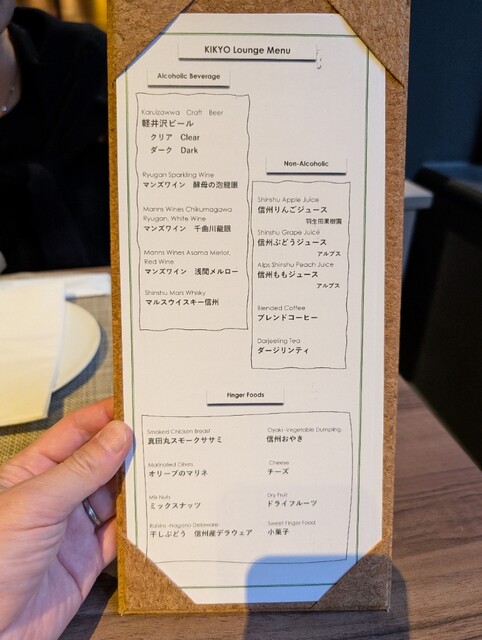 KIKYO Lounge Menu
Alcoholic Beverage
Karuizawwa Craft Beer
軽井沢ビール
クリア Clear
ダーク Dark
Ryugan Sparkling Wine
マンズワイン 酵母の泡龍眼
Manns Wines Chikumagawa
Ryugan, White Wine
マンズワイン 千曲川龍眼
Manns Wines Asama Merlot,
Red Wine
マンズワイン 浅間メルロー
Shinshu Mars Whisky
マルスウイスキー信州
Non-Alcoholic
Shinshu Apple Juice
信州りんごジュース
羽生田果樹園
Shinshu Grape Juice
信州ぶどうジュース
アルプス
Alps Shinshu Peach Juice
信州ももジュース
アルプス
Blended Coffee
ブレンドコーヒー
Darjeeling Tea
ダージリンティ
Finger Foods
Smoked Chicken Breast
真田丸スモークササミ
Marinated Olives
オリーブのマリネ
Mix Nuts
ミックスナッツ
Raisins -Nagano Delaware
干しぶどう 信州産デラウェア
Oyaki -Vegetable Dumpling
信州おやき
Cheese
チーズ
Dry Fruit
ドライフルーツ
Sweet Finger Food
小菓子